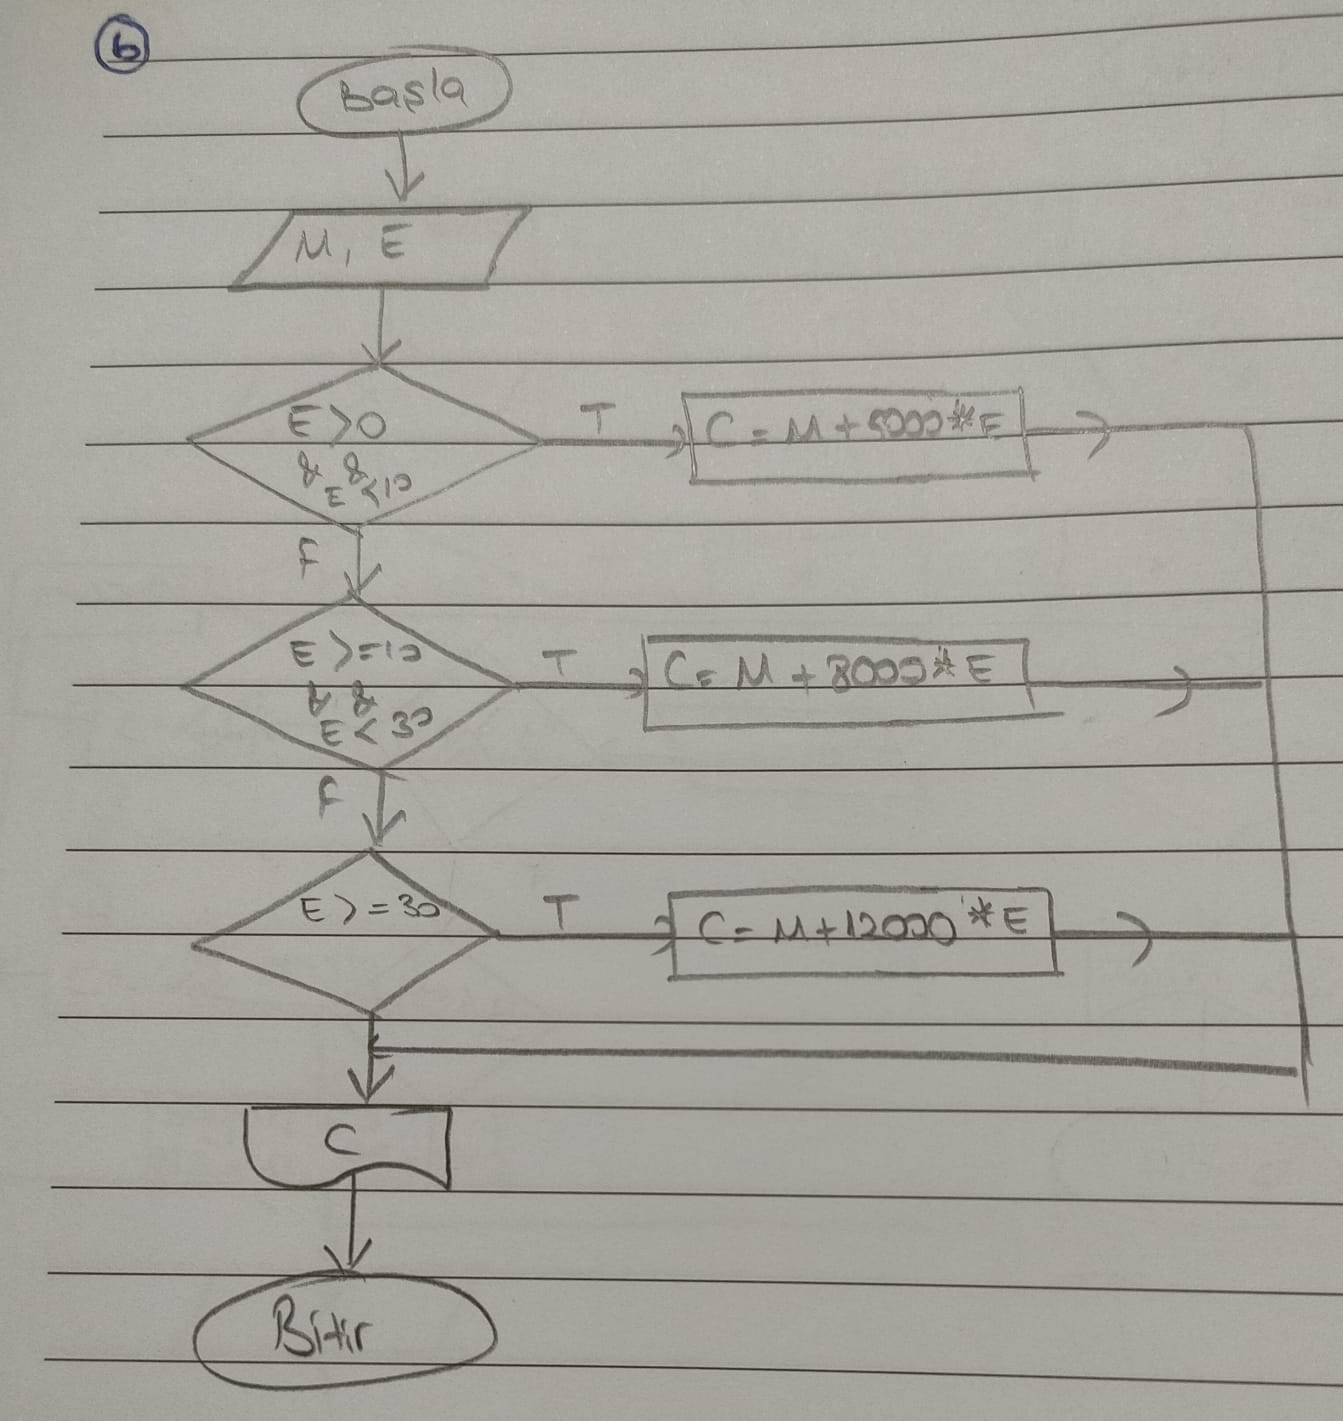 6
Başla
M, E
E>0
& &
E<10
T
C=M+5000*E
F
E>=10
& &
E<30
T
C=M+8000*E
F
E>=30
T
C=M+12000*E
C
Bitir